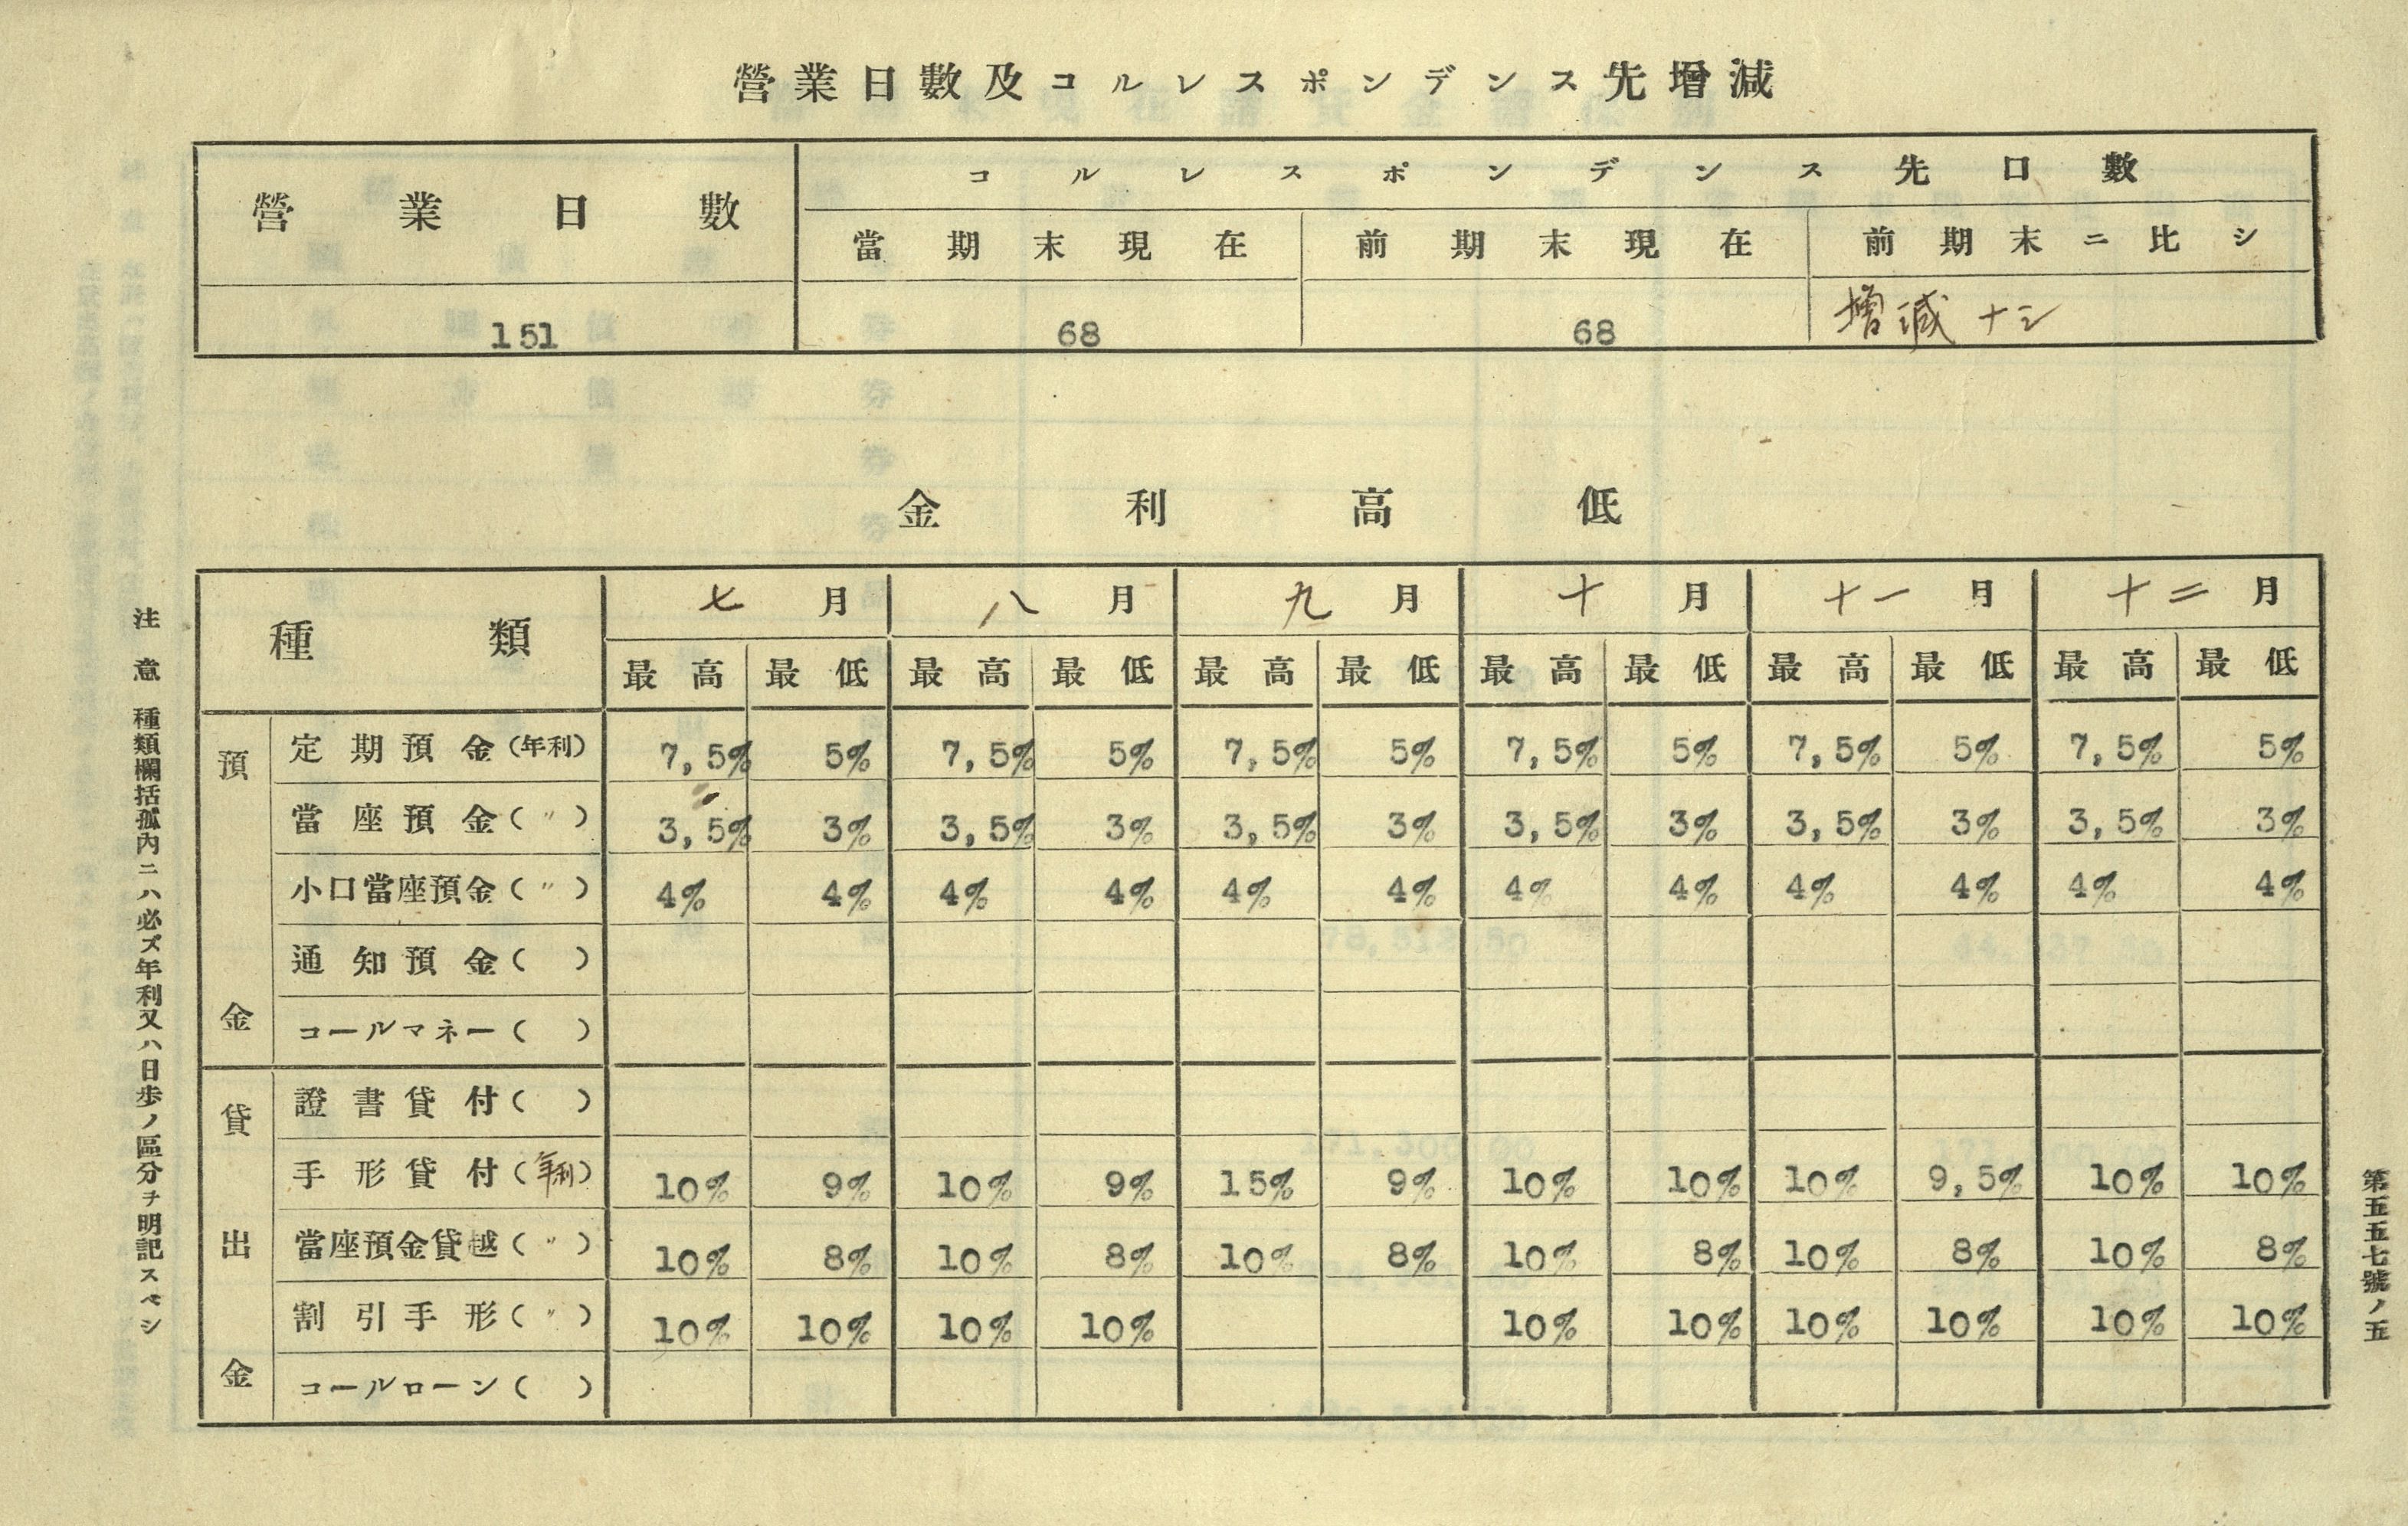 營業日數及コルレスポンデンス先增減
營業日數
コルレスポンデンス先口數
當期末現在 前期末現在 前期末ニ比シ
151 68 68 增減ナシ
金利高低
種類 七月 八月 九月 十月 十一月 十二月
最高 最低 最高 最低 最高 最低 最高 最低 最高 最低 最高 最低
預金
定期預金(年利) 7,5% 5% 7,5% 5% 7,5% 5% 7,5% 5% 7,5% 5% 7,5% 5%
當座預金(〃) 3,5% 3% 3,5% 3% 3,5% 3% 3,5% 3% 3,5% 3% 3,5% 3%
小口當座預金(〃) 4% 4% 4% 4% 4% 4% 4% 4% 4% 4% 4% 4%
通知預金( )
コールマネー( )
貸出金
證書貸付( )
手形貸付(年利) 10% 9% 10% 9% 15% 9% 10% 10% 10% 9,5% 10% 10%
當座預金貸越(〃) 10% 8% 10% 8% 10% 8% 10% 8% 10% 8% 10% 8%
割引手形(〃) 10% 10% 10% 10% 10% 10% 10% 10% 10% 10%
コールローン( )
注意 種類欄括孤內ニハ必ズ年利又ハ日歩ノ區分ヲ明記スベシ
第五五七號ノ五